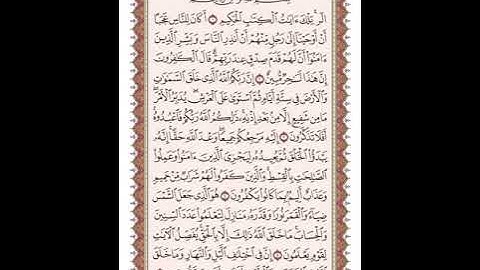 الٓر تِلْكَ ءَايَٰتُ ٱلْكِتَٰبِ ٱلْحَكِيمِ ۝ أَكَانَ لِلنَّاسِ عَجَبًا
أَنْ أَوْحَيْنَآ إِلَىٰ رَجُلٍ مِّنْهُمْ أَنْ أَنذِرِ ٱلنَّاسَ وَبَشِّرِ ٱلَّذِينَ
ءَامَنُوٓا۟ أَنَّ لَهُمْ قَدَمَ صِدْقٍ عِندَ رَبِّهِمْ ۗ قَالَ ٱلْكَٰفِرُونَ
إِنَّ هَٰذَا لَسَٰحِرٌ مُّبِينٌ ۝ إِنَّ رَبَّكُمُ ٱللَّهُ ٱلَّذِى خَلَقَ ٱلسَّمَٰوَٰتِ
وَٱلْأَرْضَ فِى سِتَّةِ أَيَّامٍ ثُمَّ ٱسْتَوَىٰ عَلَى ٱلْعَرْشِ ۖ يُدَبِّرُ ٱلْأَمْرَ ۖ
مَا مِن شَفِيعٍ إِلَّا مِنۢ بَعْدِ إِذْنِهِۦ ۚ ذَٰلِكُمُ ٱللَّهُ رَبُّكُمْ فَٱعْبُدُوهُ ۚ
أَفَلَا تَذَكَّرُونَ ۝ إِلَيْهِ مَرْجِعُكُمْ جَمِيعًا ۖ وَعْدَ ٱللَّهِ حَقًّا ۚ إِنَّهُۥ
يَبْدَؤُا۟ ٱلْخَلْقَ ثُمَّ يُعِيدُهُۥ لِيَجْزِىَ ٱلَّذِينَ ءَامَنُوا۟ وَعَمِلُوا۟
ٱلصَّٰلِحَٰتِ بِٱلْقِسْطِ ۚ وَٱلَّذِينَ كَفَرُوا۟ لَهُمْ شَرَابٌ مِّنْ حَمِيمٍ
وَعَذَابٌ أَلِيمٌۢ بِمَا كَانُوا۟ يَكْفُرُونَ ۝ هُوَ ٱلَّذِى جَعَلَ ٱلشَّمْسَ
ضِيَآءً وَٱلْقَمَرَ نُورًا وَقَدَّرَهُۥ مَنَازِلَ لِتَعْلَمُوا۟ عَدَدَ ٱلسِّنِينَ
وَٱلْحِسَابَ ۚ مَا خَلَقَ ٱللَّهُ ذَٰلِكَ إِلَّا بِٱلْحَقِّ ۚ يُفَصِّلُ ٱلْءَايَٰتِ
لِقَوْمٍ يَعْلَمُونَ ۝ إِنَّ فِى ٱخْتِلَٰفِ ٱلَّيْلِ وَٱلنَّهَارِ وَمَا خَلَقَ